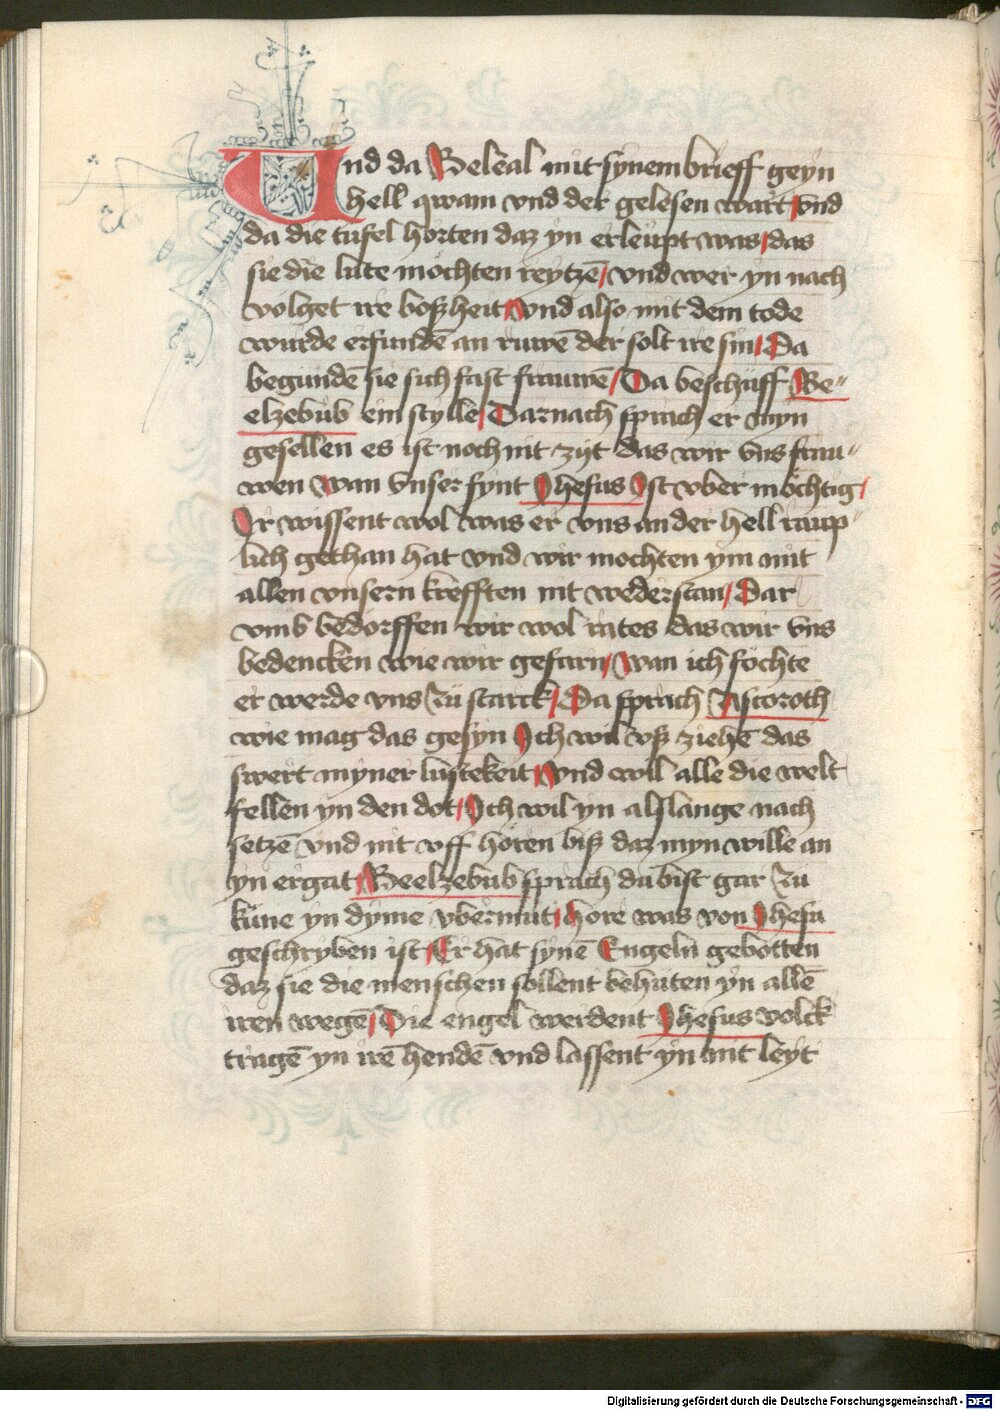 Und da Beleal mit synem brieff geyn
hell qwam vnd der gelesen wart vnd
da die tufel horten daz yn erleupt was / das
sie die lute mochten reytzē / vnd wer yn nach
volget ire boßheit / vnd also mit dem tode
wurde erfundē an ruwē der solt ire sin / Da
begundē sie sich fast frauwē / Da beschuff Be„
elzebub ein stylle / Darnach sprach er myn
gesellen es ist noch nit zyt das wir vns frau„
wen wan vnser fynt Jhesus Jst vber mochtig /
Jr wissent wol was er vns an der hell raup„
lich gethan hat vnd wir mochten ym mit
allen vnsern krefften nit wederstan / Dar
vmb bedorffen wir wol rates das wir vns
bedencken wie wir gefarn / wan ich fochte
er werde vns zu starck / Da sprach Astoroth
wie mag das gesyn Jch wil vß ziehē das
swert myner lustekeit / vnd wil alle die welt
fellen yn den dot / Jch wil yn alslange nach
setzē vnd nit vff horen biß daz myn wille an
yn ergat / Beelzebub sprach du bist gar zu
kune yn dyme vbermut / hore was von Jhesu
geschryben ist / Er hat synē Engeln gebotten
daz sie die menschen sollent behuten yn allē
iren wegē / Die engel werdent Jhesus volck
tragē yn irē hendē vnd lassent yn nit leyt
Digitalisierung gefördert durch die Deutsche Forschungsgemeinschaft - DFG